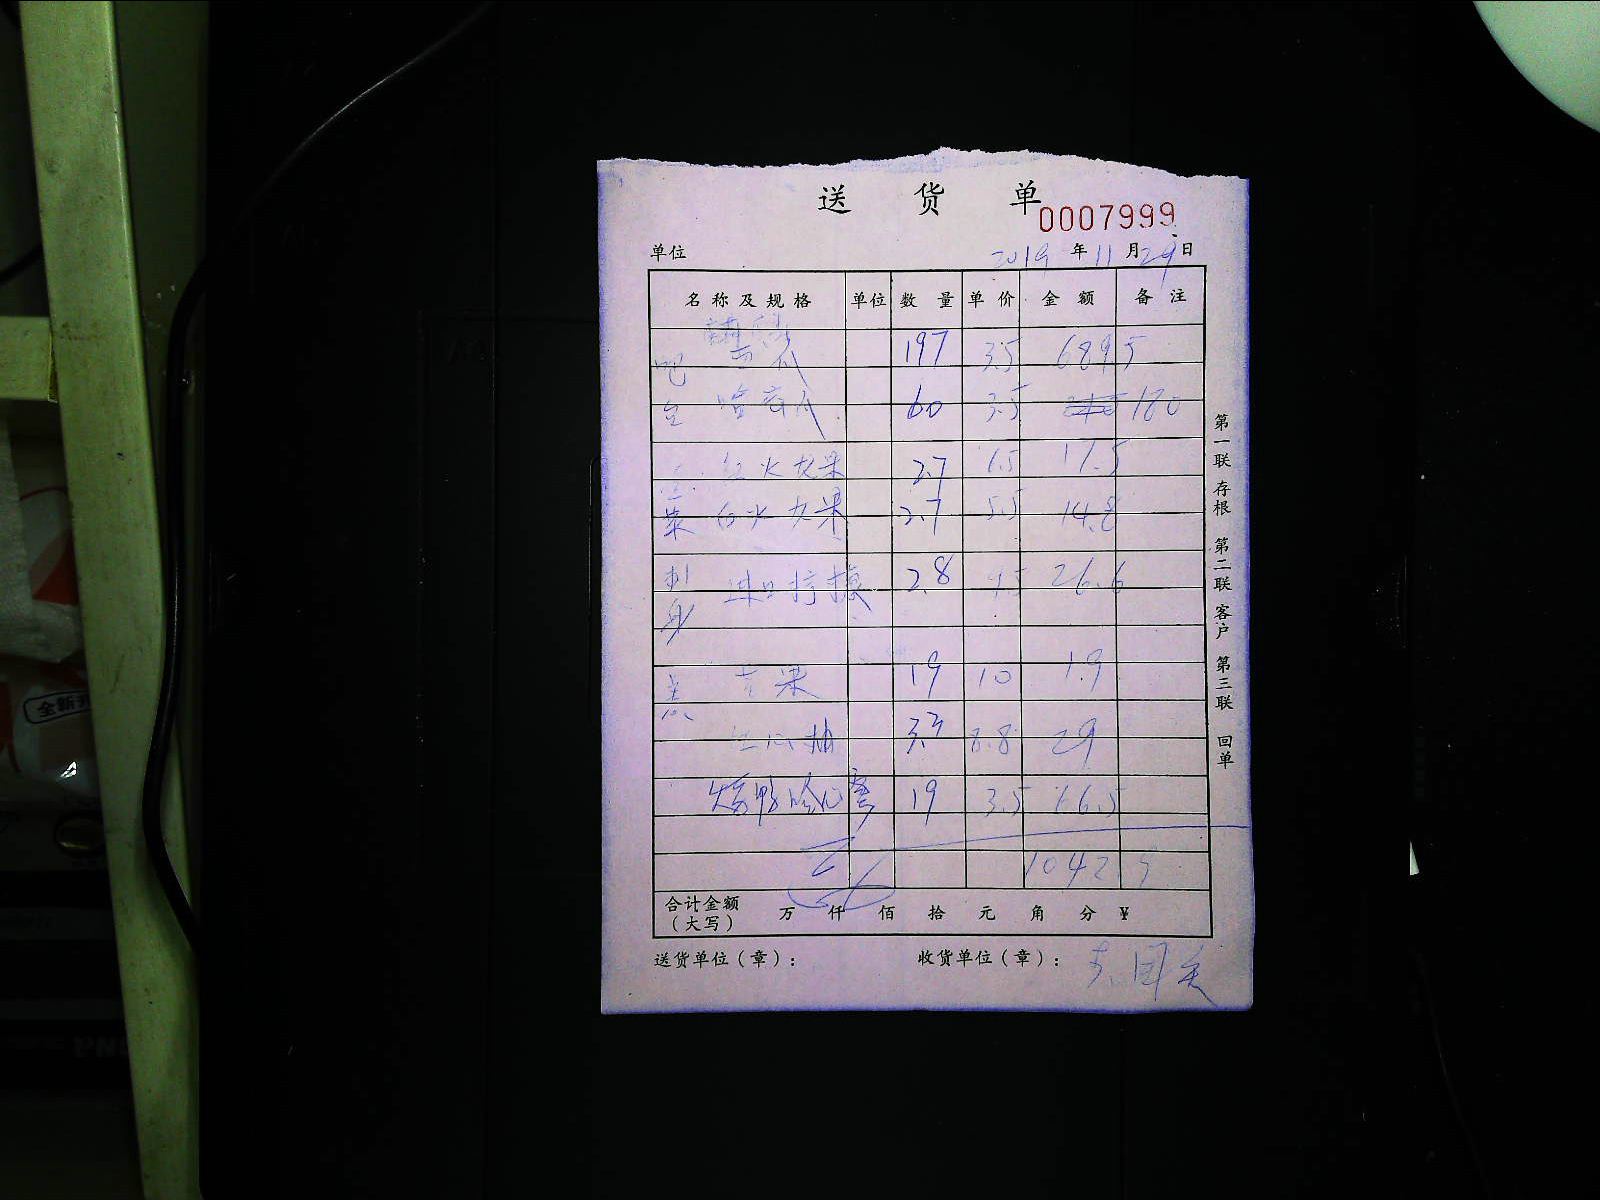 送 货 单
0007999
单位 2019 年 11 月 29 日
名称及规格 单位 数量 单价 金额 备注
吧台 西瓜 197 3.5 689.5
哈密瓜 60 3.5 180
红火龙果 2.7 6.5 17.5
菜 白火龙果 2.7 5.5 14.8
刺身 进口柠檬 2.8 9.5 26.6
苹果 19 10 1.9
红心柚 3.3 8.8 29
19 3.5 66.5
1042
合计金额（大写） 万 仟 佰 拾 元 角 分 ¥
送货单位（章）： 收货单位（章）：
第一联 存根 第二联 客户 第三联 回单
全新